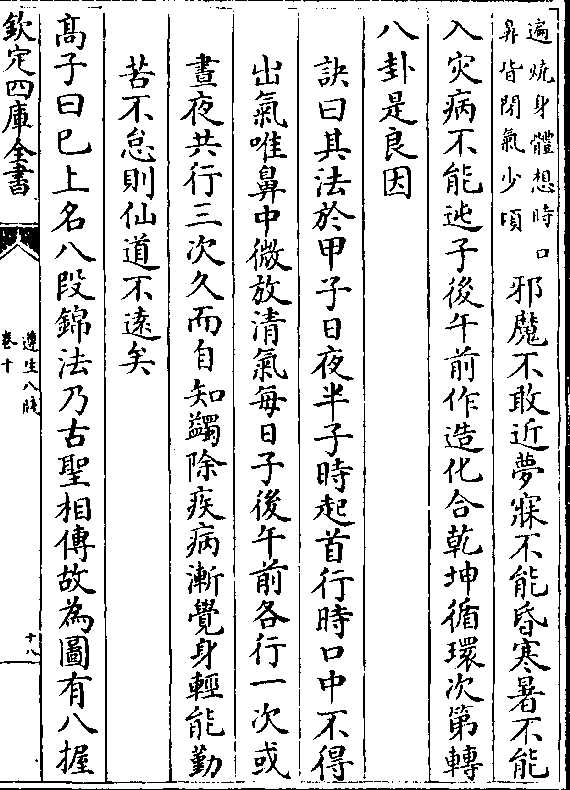 遍燒身體想時口
鼻皆閉氣少頃
邪魔不敢近夢寐不能昏寒暑不能
入灾病不能迍子後午前作造化合乾坤循環次第轉
八卦是良因
訣曰其法於甲子日夜半子時起首行時口中不得
出氣唯鼻中微放清氣每日子後午前各行一次或
晝夜共行三次久而自知蠲除疾病漸覺身輕能勤
苦不怠則仙道不逺矣
髙子曰已上名八段錦法乃古聖相傳故為圖有八握
欽定四庫全書
遵生八牋
卷十
十八